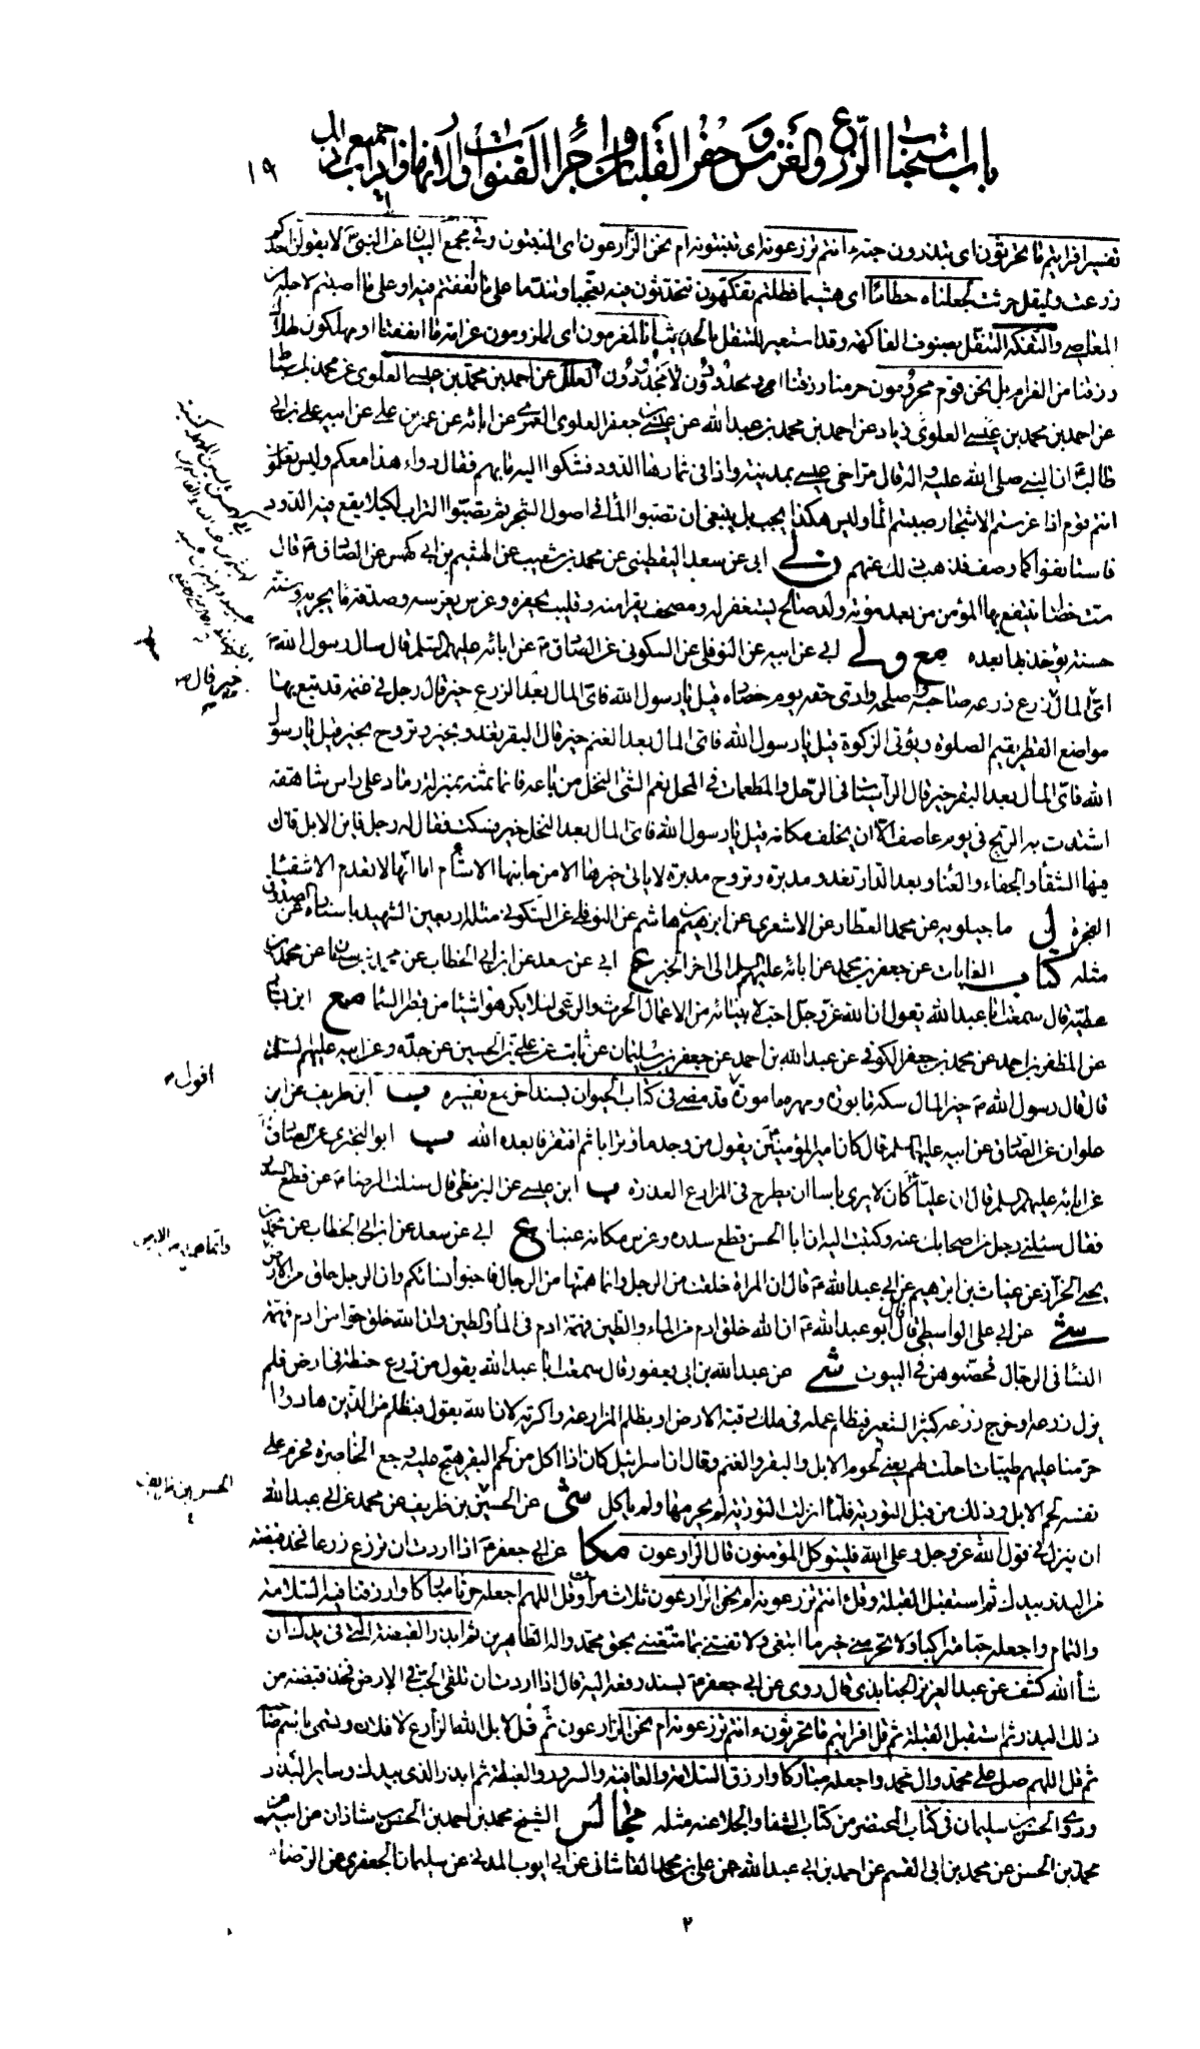 باب استحباب الزرع والغرس وحفر القلبان واجراء القنوات والانهار واداب جميع ذلك
١٩
تفسير افرايتم ما تحرثون اى تبذرون حبه ءانتم تزرعونه اى تنبتونه ام نحن الزارعون اى المنبتون وفى مجمع البيان عن النبى ص لا يقولن احدكم
زرعت وليقل حرثت لجعلناه حطاما اى هشيما فظلتم تفكهون تتحدثون فيه تعجبا وتندما على ما انفقتم فيه او على ما اصبتم لاجله من
المعاصى والتفكه التنقل بصنوف الفاكهة وقد استعير للتنقل بالحديث انا لمغرمون اى لملزمون غرامة ما انفقنا او مهلكون لهلاك
رزقنا من الغرام بل نحن قوم محرومون حرمنا رزقنا او محدودون لا مجدودون العلل عن احمد بن محمد بن عيسى العلوى عن محمد بن اسباط
عن احمد بن محمد بن زياد عن احمد بن محمد بن عبد الله عن عيسى بن جعفر العلوى العمرى عن ابائه عن عمر بن على عن ابيه على بن ابى
طالب ان النبى صلى الله عليه واله قال مر اخى عيسى بمدينة واذا فى ثمارها الدود فشكوا اليه ما بهم فقال دواء هذا معكم وليس تعلمون
انتم قوم اذا غرستم الاشجار صببتم الماء وليس هكذا يجب بل ينبغى ان تصبوا الماء فى اصول الشجر ثم تصبوا التراب لكيلا يقع فيه الدود
فاستانفوا كما وصف فذهب ذلك عنهم ل ابى عن سعد عن اليقطينى عن محمد بن شعيب عن الهيثم بن ابى كهمس عن الصادق ع قال
ست خصال ينتفع بها المؤمن من بعد موته ولد صالح يستغفر له ومصحف يقرا منه وقليب يحفره وغرس يغرسه وصدقة ماء يجريه وسنة
حسنة يؤخذ بها بعده مع ولى ابى عن ابيه عن النوفلى عن السكونى عن الصادق ع عن ابائه عليهم السلم قال سال رسول الله ص
اى المال زرع زرعه صاحبه واصلحه وادى حقه يوم حصاده قيل يا رسول الله فاى المال بعد الزرع خير قال رجل فى غنمه قد تبع بها
مواضع القطر يقيم الصلوة ويؤتى الزكوة قيل يا رسول الله فاى المال بعد الغنم خير قال البقر تغدو بخير وتروح بخير قيل يا رسول
الله فاى المال بعد البقر خير قال الراسيات فى الوحل والمطعمات فى المحل نعم الشئ النخل من باعه فانما ثمنه بمنزلة رماد على راس شاهقة
اشتدت به الريح فى يوم عاصف الا ان يخلف مكانه قيل يا رسول الله فاى المال بعد النخل خير فسكت فقال له رجل فاين الابل قال
فيها الشقاء والجفاء والعناء وبعد الدار تغدو مدبرة وتروح مدبرة لا ياتى خيرها الا من جانبها الاشام اما انها لا تعدم الاشقياء
الفجرة لى ماجيلويه عن محمد العطار عن الاشعرى عن ابراهيم بن هاشم عن النوفلى عن السكونى مثله اربعين الشهيد باسناده عن الصدوق
مثله كتاب الغايات عن جعفر بن محمد عن ابائه عليهم السلم الى اخر الخبر ع ابى عن سعد عن ابن ابى الخطاب عن محمد بن سنان عن محمد بن
عطية قال سمعت ابا عبد الله يقول ان الله عز وجل احب لانبيائه من الاعمال الحرث والرعى لئلا يكرهوا شيئا من قطر السماء مع
عن المظفر بن احمد عن محمد بن جعفر الكوفى عن عبد الله بن احمد عن جعفر بن سليمان عن ثابت عن على بن الحسين عن جده وعن ابيه عليهم السلم
قال قال رسول الله ص خير المال سكة مابورة ومهرة مامورة قد مضى فى كتاب الحيوان بسند اخر مع تفسيره ب ابن طريف عن ابن
علوان عن الصادق عن ابيه عليهم السلم قال كان امير المؤمنين يقول من وجد ماء وترابا ثم افتقر فابعده الله ب ابو البخترى عن الصادق
عن ابيه عليهم السلم قال ان عليا كان لا يرى باسا ان يطرح فى المزارع العذرة ب ابن عيسى عن البزنطى قال سئلت الرضا ع عن قطع السدر
فقال سئلنى رجل من اصحابك عنه وكتبت اليه ان ابا الحسن قطع سدره وغرس مكانه عنبا ع ابى عن سعد عن ابن ابى الخطاب عن محمد بن
يحيى الخزاز عن غياث بن ابرهيم عن ابى عبد الله ع قال ان المراة خلقت من الرجل وانما همتها من الرجال فاحبسوا نسائكم وان الرجل خلق من الارض
شى عن ابى على الواسطى قال قال ابو عبد الله ع ان الله خلق ادم من الماء والطين فهمة ادم فى الماء والطين وان الله خلق حوا من ادم فهمة
النساء فى الرجال فحصنوهن فى البيوت شى عن عبد الله بن ابى يعفور قال سمعت ابا عبد الله يقول من زرع حنطة فى ارض فلم
يزك زرعه او خرج زرعه كثير الشعير فبظلم عمله فى ملك رقبة الارض او بظلم المزارعه واكرته لان الله يقول فبظلم من الذين هادوا
حرمنا عليهم طيبات احلت لهم يعنى لحوم الابل والبقر والغنم وقال ان اسرائيل كان اذا اكل من لحم البقر هيج عليه وجع الخاصرة فحرم على
نفسه لحم الابل وذلك من قبل التورية فلما انزلت التورية لم يحرمها ولم ياكل شى عن الحسين بن ظريف عن محمد عن ابى عبد الله
ان ينزل فى قول الله عز وجل وعلى الله فليتوكل المؤمنون قال الزارعون مكا عن ابى جعفر ع اذا اردت ان تزرع زرعا فخذ قبضة
من البذر بيدك ثم استقبل القبلة وقل ءانتم تزرعونه ام نحن الزارعون ثلاث مرات وقل اللهم اجعله حرثا مباركا وارزقنا فيه السلامة
والتمام واجعله حبا متراكبا ولا تحرمنى خير ما ابتغى ولا تفتنى بما متعتنى بحق محمد واله الطاهرين ثم ابذر القبضة التى فى يدك ان
شاء الله كشف عن عبد العزيز الجنابذى قال روى عن ابى جعفر ع بسند رفعه اليه قال اذا اردت ان تلقى الحب فى الارض فخذ قبضة من
ذلك البذر ثم استقبل القبلة ثم قل افرايتم ما تحرثون ءانتم تزرعونه ام نحن الزارعون ثم قل لا بل الله الزارع لا فلان وتسمى باسم صاحبه
ثم قل اللهم صل على محمد وال محمد واجعله مباركا وارزقه السلامة والعافية والسرور والغبطة ثم ابذر الذى بيدك وساير البذر
وروى الحسن بن سليمان فى كتاب المحتضر من كتاب الشفا والجلا عنه مثله مجالس الشيخ محمد بن احمد بن الحسن بن شاذان عن ابيه عن
محمد بن الحسن عن محمد بن ابى القسم عن احمد بن ابى عبد الله عن على بن محمد القاشانى عن ابى ايوب المدنى عن سليمان الجعفرى عن الرضا
خير قال
اقول
وانما همته الارض
الحسن بن ظريف
٢